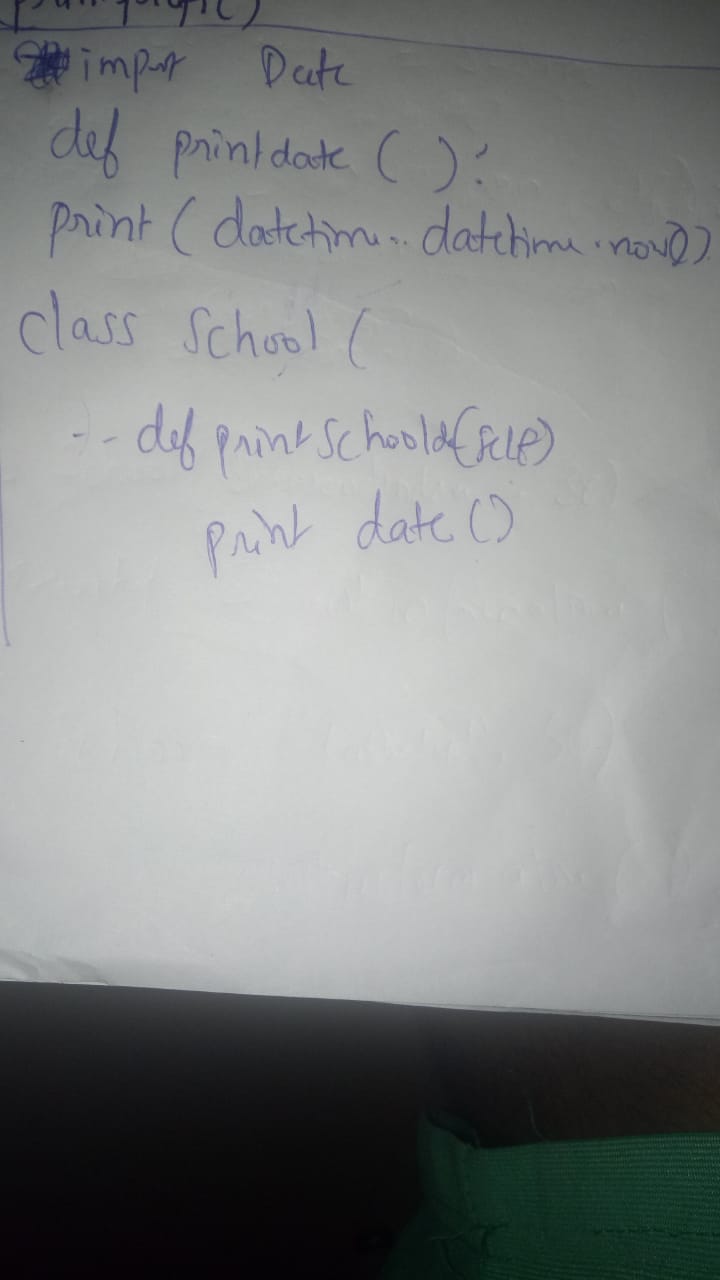 import Date
def printdate ( ):
print ( datetime.. datetime.now())
class School (
-- def printSchoold(self)
print date ()